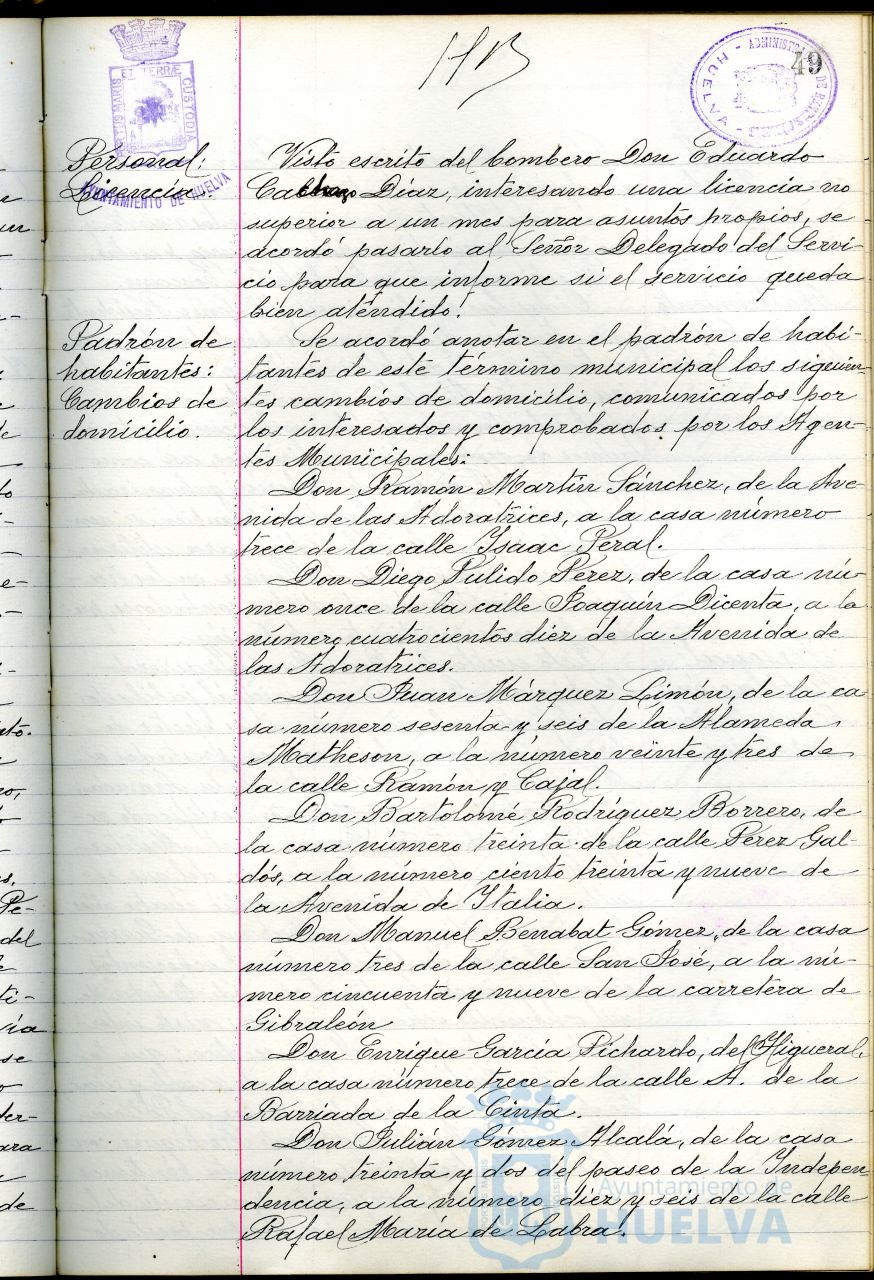 49
PORTUS MARIS ET TERRÆ CUSTODIA
AYUNTAMIENTO DE HUELVA
HUELVA
Personal:
Licencia.
Visto escrito del bombero Don Eduardo
Díaz, interesando una licencia no
superior a un mes para asuntos propios, se
acordó pasarlo al Señor Delegado del Servi-
cio para que informe si el servicio queda
bien aténdido.
Padrón de
habitantes:
Cambios de
domicilio.
Se acordó anotar en el padrón de habi-
tantes de este término municipal los siguien-
tes cambios de domicilio, comunicados por
los interesados y comprobados por los Agen-
tes Municipales:
Don Ramón Martín Sánchez, de la Ave-
nida de las Adoratrices, a la casa número
trece de la calle Isaac Peral.
Don Diego Pulido Pérez, de la casa nú-
mero once de la calle Joaquín Dicenta, a la
número cuatrocientos diez de la Avenida de
las Adoratrices.
Don Juan Márquez Limón, de la ca-
sa número sesenta y seis de la Alameda
Matheson, a la numero veinte y tres de
la calle Ramón y Cajal.
Don Bartolomé Rodríguez Borrero, de
la casa número treinta de la calle Pérez Gal-
dós, a la número ciento treinta y nueve de
la Avenida de Italia.
Don Manuel Benabat Gómez, de la casa
número tres de la calle San José, a la nú-
mero cincuenta y nueve de la carretera de
Gibraleón
Don Enrique García Pichardo, del Higueral,
a la casa número trece de la calle A. de la
Barriada de la Cinta.
Don Julián Gómez Alcalá, de la casa
número treinta y dos del paseo de la Indepen-
dencia, a la número diez y seis de la calle
Rafael María de Labra.
Ayuntamiento de
HUELVA